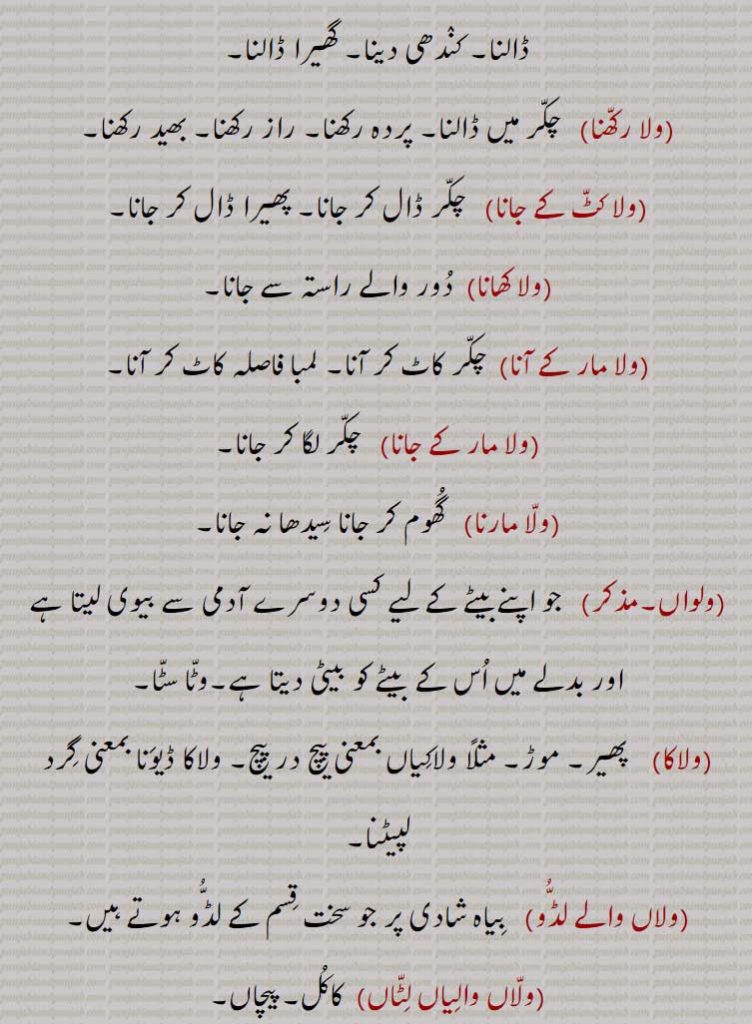 ڈالنا۔ کنْدھی دینا۔ گھیرا ڈالنا۔
(ولا رکھّنا) چکّر میں ڈالنا۔ پردہ رکھنا۔ راز رکھنا۔ بھید رکھنا۔
(ولا کٹّ کے جانا) چکّر ڈال کر جانا۔ پھیرا ڈال کر جانا۔
(ولا کھانا) دُور والے راستہ سے جانا۔
(ولا مار کے آنا) چکّر کاٹ کر آنا۔ لمبا فاصلہ کاٹ کر آنا۔
(ولا مار کے جانا) چکّر لگا کر جانا۔
(ولّا مارنا) گُھوم کر جانا سِیدھا نہ جانا۔
(ولواں۔مذکر) جو اپنے بیٹے کے لیے کسی دوسرے آدمی سے بیوی لیتا ہے
اور بدلے میں اُس کے بیٹے کو بیٹی دیتا ہے۔وٹّا سٹّا۔
(ولاکا) پھیر۔ موڑ۔ مثلًا ولاکِیاں بمعنی پیچ در پیچ۔ ولاکا ڈیوَنا بمعنی گِرد
لپیٹنا۔
(ولاں والے لڈُّو) بِیاہ شادی پر جو سخت قِسم کے لڈُّو ہوتے ہیں۔
(ولّاں والِیاں لِٹّاں) کاکُل۔ پیچاں۔